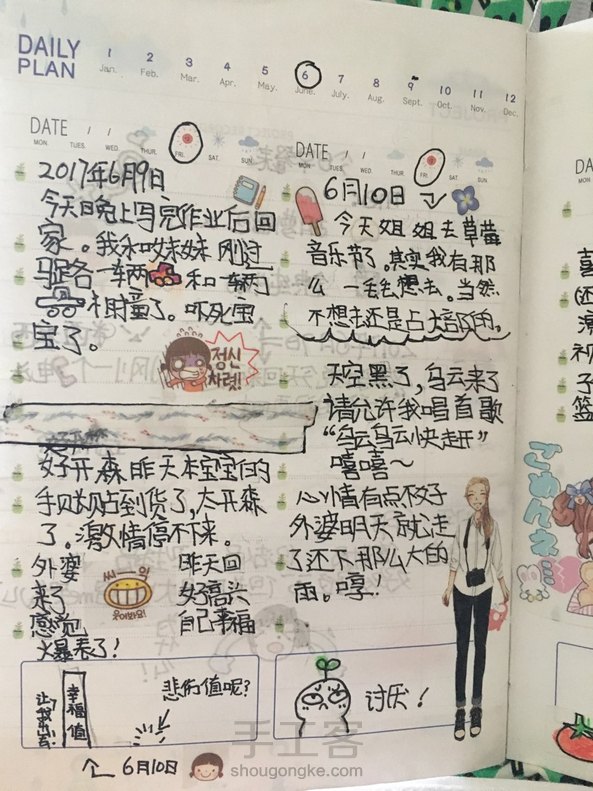 DAILY
PLAN
1 2 3 4 5 6 7 8 9 10 11 12
Jan. Feb. Mar. Apr. May. June. July. Aug. Sept. Oct. Nov. Dec.
DATE / /
MON. TUES. WED. THUR. FRI. SAT. SUN.
2017年6月9日
今天晚上写完作业后回
家。我和妹妹刚过
马路各一车两和一辆
相撞了。吓死宝
宝了。
정신
차렷!
好开森昨天本宝宝的
手账占到货了,太开森
了。激情停不下来。
外婆
来了
感觉
爆表了!
씨익
웃어봐요!
昨天回
好高兴
自己幸福
让我出去!
幸福值
悲伤值呢?
6月10日
DATE / /
MON. TUES. WED. THUR. FRI. SAT. SUN.
6月10日
今天姐姐去草莓
音乐节了。其实我有那
么一丢丢想去。当然
不想去还是占大部的。
天空黑了,乌云来了
请允许我唱首歌
“乌云乌云快走开”
嘻嘻~
心情有点不好
外婆明天就走
了还下那么大的
雨。哼!
讨厌!
ごめんネ
手工客
shougongke.com